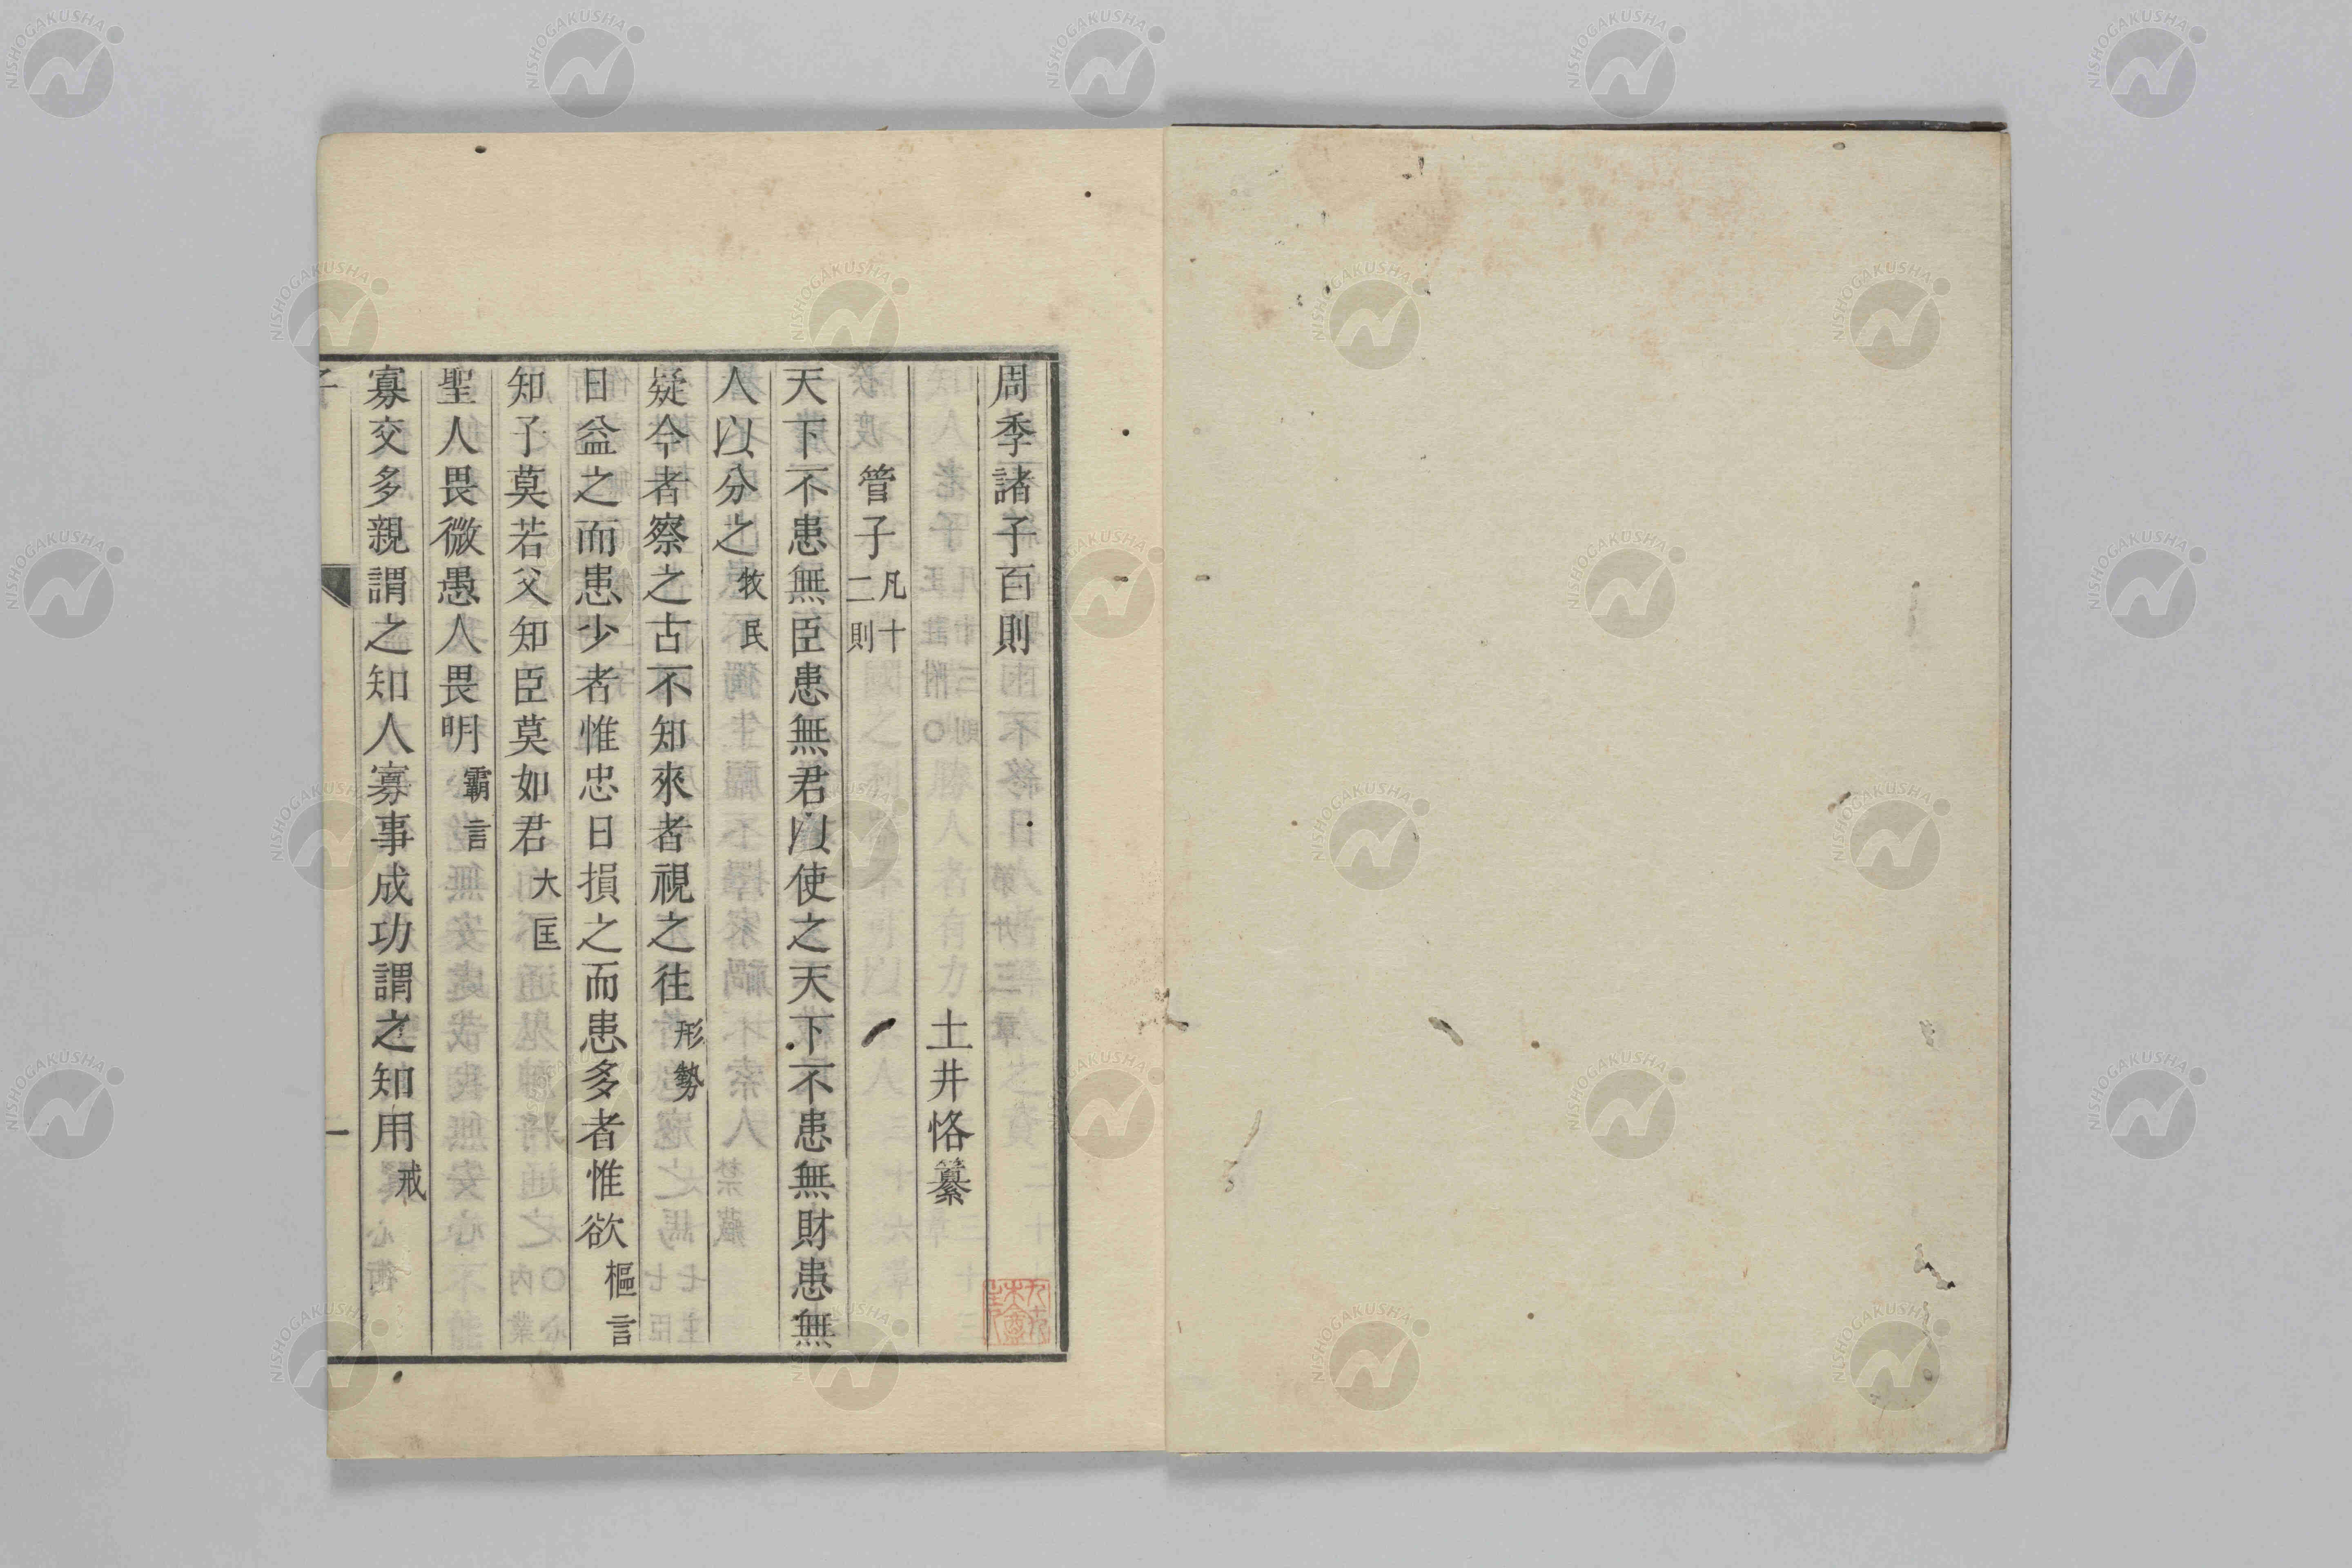 周季諸子百則
土井恪纂
管子凡十二則
天下不患無臣患無君以使之天下不患無財患無
人以分之牧民
疑今者察之古不知來者視之往形勢
日益之而患少者惟忠日損之而患多者惟欲樞言
知子莫若父知臣莫如君大匡
聖人畏微愚人畏明霸言
寡交多親謂之知人寡事成功謂之知用戒
一
NISHOGAKUSHA